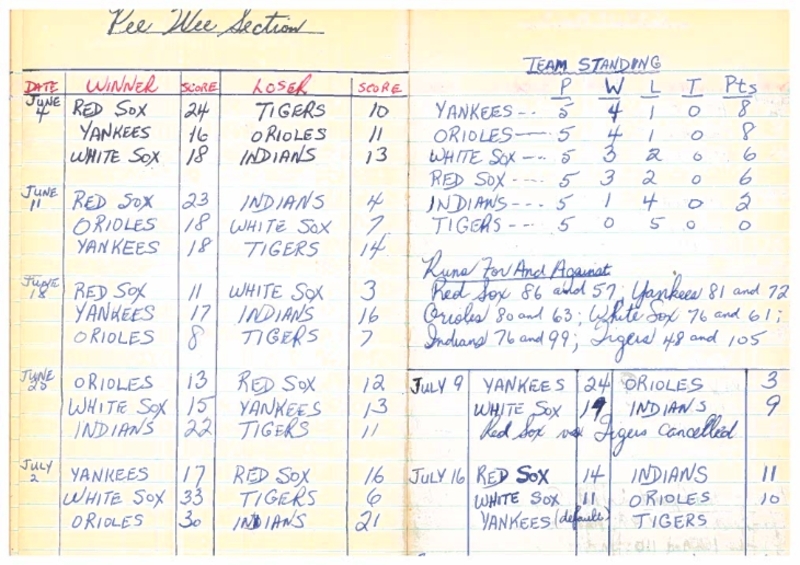 Pee Wee Section
DATE WINNER SCORE LOSER SCORE
JUNE 4 RED SOX 24 TIGERS 10
YANKEES 16 ORIOLES 11
WHITE SOX 18 INDIANS 13
JUNE 11 RED SOX 23 INDIANS 4
ORIOLES 18 WHITE SOX 7
YANKEES 18 TIGERS 14
JUNE 18 RED SOX 11 WHITE SOX 3
YANKEES 17 INDIANS 16
ORIOLES 8 TIGERS 7
JUNE 25 ORIOLES 13 RED SOX 12
WHITE SOX 15 YANKEES 13
INDIANS 22 TIGERS 11
JULY 2 YANKEES 17 RED SOX 16
WHITE SOX 33 TIGERS 6
ORIOLES 30 INDIANS 21
TEAM STANDING
P W L T Pts
YANKEES--- 5 4 1 0 8
ORIOLES--- 5 4 1 0 8
WHITE SOX --- 5 3 2 0 6
RED SOX --- 5 3 2 0 6
INDIANS --- 5 1 4 0 2
TIGERS --- 5 0 5 0 0
Runs For And Against
Red Sox 86 and 57; Yankees 81 and 72
Orioles 80 and 63; White Sox 76 and 61;
Indians 76 and 99; Tigers 48 and 105
JULY 9 YANKEES 24 ORIOLES 3
WHITE SOX 19 INDIANS 9
Red Sox vs Tigers Cancelled
JULY 16 RED SOX 14 INDIANS 11
WHITE SOX 11 ORIOLES 10
YANKEES (default) TIGERS